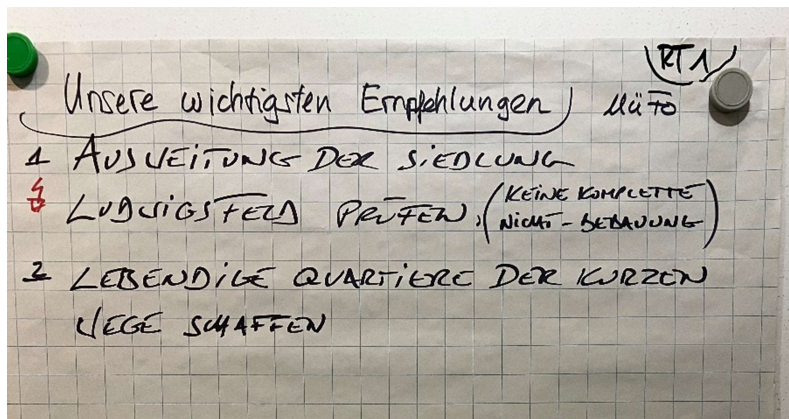 RT1
Unsere wichtigsten Empfehlungen MüFo
1 AUSWEITUNG DER SIEDLUNG
LUDWIGSFELD PRÜFEN, (KEINE KOMPLETTE
NICHT-BEBAUUNG)
2 LEBENDIGE QUARTIERE DER KURZEN
WEGE SCHAFFEN